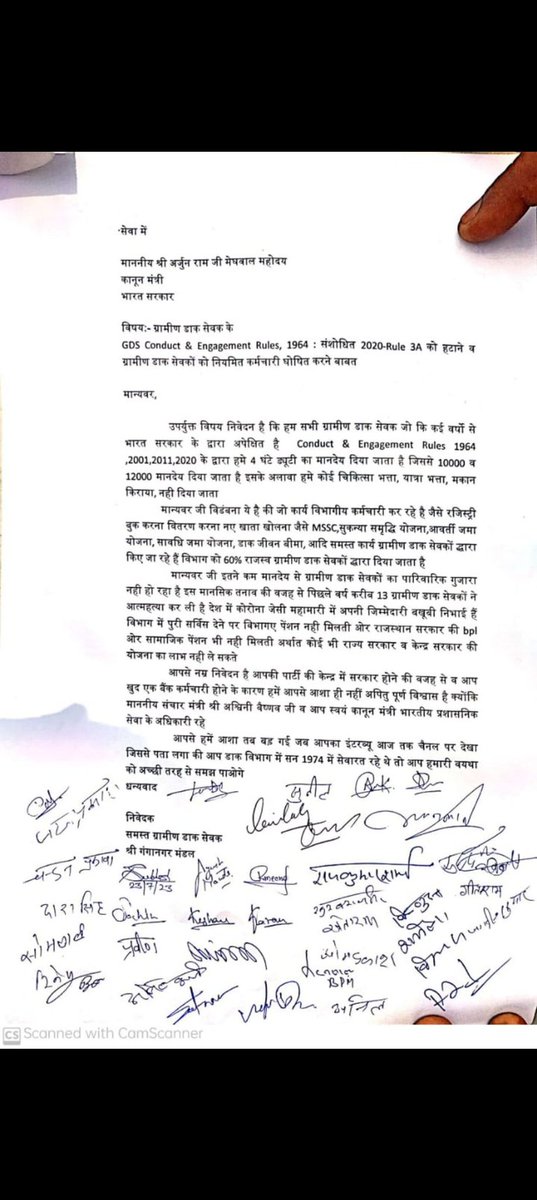 सेवा में
माननीय श्री अर्जुन राम जी मेघवाल महोदय
कानून मंत्री
भारत सरकार
विषय:- ग्रामीण डाक सेवक के
GDS Conduct & Engagement Rules, 1964 : संशोधित 2020-Rule 3A को हटाने व
ग्रामीण डाक सेवकों को नियमित कर्मचारी घोषित करने बाबत
मान्यवर,
उपर्युक्त विषय निवेदन है कि हम सभी ग्रामीण डाक सेवक जो कि कई वर्षो से
भारत सरकार के द्वारा अपेक्षित है Conduct & Engagement Rules 1964
,2001,2011,2020 के द्वारा हमे 4 घंटे ड्यूटी का मानदेय दिया जाता है जिससे 10000 व
12000 मानदेय दिया जाता है इसके अलावा हमे कोई चिकित्सा भत्ता, यात्रा भत्ता, मकान
किराया, नही दिया जाता
मान्यवर जी विडंबना ये है की जो कार्य विभागीय कर्मचारी कर रहे है जैसे रजिस्ट्री
बुक करना वितरण करना नए खाता खोलना जैसे MSSC,सुकन्या समृद्धि योजना,आवर्ती जमा
योजना, सावधि जमा योजना, डाक जीवन बीमा, आदि समस्त कार्य ग्रामीण डाक सेवकों द्वारा
किए जा रहे हैं विभाग को 60% राजस्व ग्रामीण डाक सेवकों द्वारा दिया जाता है
मान्यवर जी इतने कम मानदेय से ग्रामीण डाक सेवकों का पारिवारिक गुजारा
नही हो रहा है इस मानसिक तनाव की वजह से पिछले वर्ष करीब 13 ग्रामीण डाक सेवकों ने
आत्महत्या कर ली है देश में कोरोना जेसी महामारी में अपनी जिम्मेदारी बखूबी निभाई हैं
विभाग में पुरी सर्विस देने पर विभागए पेंशन नही मिलती ओर राजस्थान सरकार की bpl
ओर सामाजिक पेंशन भी नही मिलती अर्थात कोई भी राज्य सरकार व केन्द्र सरकार की
योजना का लाभ नही ले सकते
आपसे नम्र निवेदन है आपकी पार्टी की केन्द्र में सरकार होने की वजह से व आप
खुद एक बैंक कर्मचारी होने के कारण हमें आपसे आशा ही नहीं अपितु पूर्ण विश्वास है क्योंकि
माननीय संचार मंत्री श्री अश्विनी वैष्णव जी व आप स्वयं कानून मंत्री भारतीय प्रशासनिक
सेवा के अधिकारी रहे
आपसे हमें आशा तब बड़ गई जब आपका इंटरव्यू आज तक चैनल पर देखा
जिससे पता लगा की आप डाक विभाग में सन 1974 में सेवारत रहे थे तो आप हमारी वयथा
को अच्छी तरह से समझ पाओगे
धन्यवाद
निवेदक
समस्त ग्रामीण डाक सेवक
श्री गंगानगर मंडल
23/7/23
BPM
CS Scanned with CamScanner